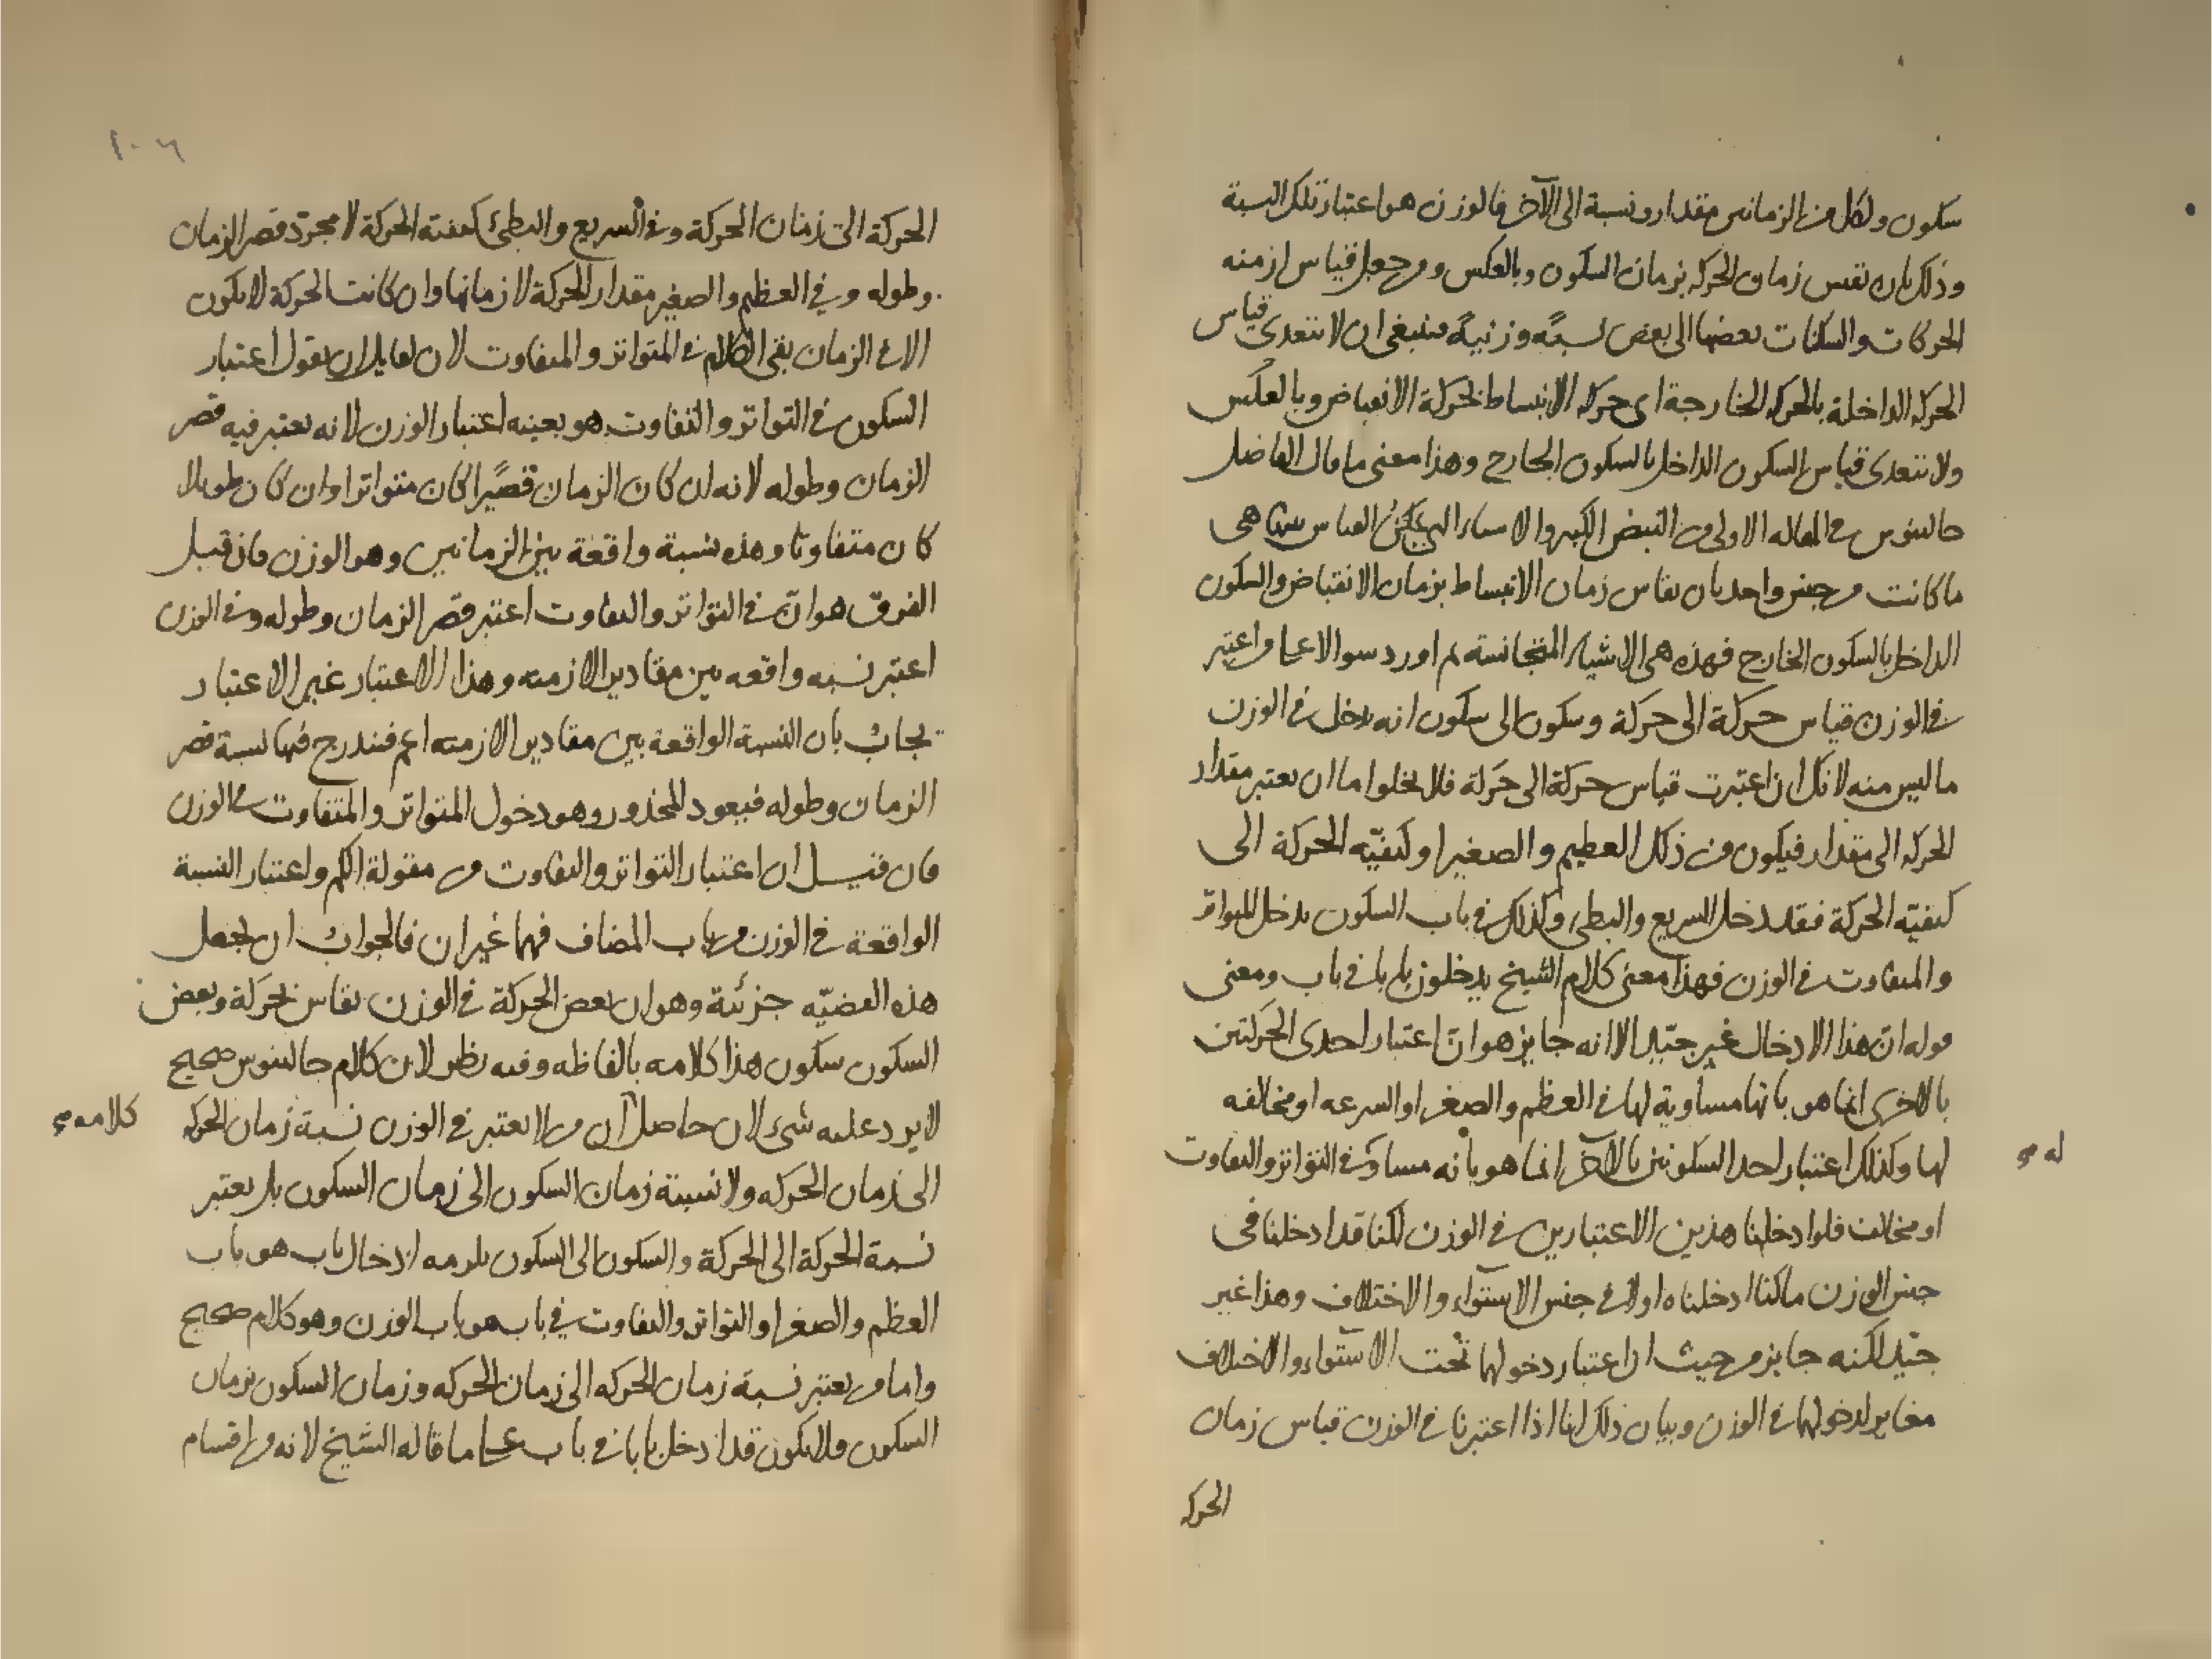 سكون ولكل من الزمانين مقدار ونسبة الى الآخر فالوزن هو اعتبار تلك النسبة
وذلك بان نقيس زمان الحركه بزمان السكون وبالعكس ومن جعل قياس ازمنه
الحركات والسكنات بعضها الى بعض نسبةً وزنيةً فينبغى ان لا نتعدى قياس
الحركه الداخلة بالحركه الخارجة اى حركه الانبساط بحركة الانقباض وبالعكس
ولا نتعدى قياس السكون الداخل بالسكون الخارج وهذا معنى ما قال الفاضل
جالينوس فى المقاله الاولى من النبض الكبير والاشياء التى يمكن القياس بينها هى
ما كانت من جنس واحد بان يقاس زمان الانبساط بزمان الانقباض والسكون
الداخل بالسكون الخارج فهذه هى الاشياء المتجانسة ثم اورد سوالا على من اعتبر
فى الوزن قياس حركة الى حركة وسكون الى سكون انه يدخل فى الوزن
ما ليس منه لانك ان اعتبرت قياس حركة الى حركة فلا يخلوا ما ان يعتبر مقدار
الحركه الى مقدار فيكون من ذلك العظيم والصغير او كيفيّه الحركة الى
كيفيّه الحركة فقد دخل السريع والبطى وكذلك فى باب السكون يدخل المتواتر
والمتفاوت فى الوزن فهذا معنى كلام الشيخ يدخلون بابا فى باب ومعنى
قوله ان هذا الادخال غير جيّد الا انه جايز هو ان اعتبار احدى الحركتين
بالاخرى انما هو بانها مساوية لها فى العظم والصغر او السرعه او مخالفه
لها وكذلك اعتبار احد السكونين بالآخر انما هو بانه مساو فى التواتر والتفاوت
له صح
او مخالف فلو ادخلنا هذين الاعتبارين فى الوزن لكنا قد ادخلنا فى
جنس الوزن ما كنا ادخلناه اولا فى جنس الاستواء والاختلاف وهذا غير
جيّد لكنه جايز من حيث ان اعتبار دخولها تحت الاستواء والاختلاف
مغاير لدخولها فى الوزن وبيان ذلك انا اذا اعتبرنا فى الوزن قياس زمان
الحركه
١٠٦
الحركة الى زمان الحركة وفى السريع والبطئ كيفية الحركة لا مجرّد قصر الزمان
وطوله وفى العظيم والصغير مقدار الحركة لا زمانها وان كانت الحركة لا يكون
الا فى الزمان بقى الكلام فى المتواتر والمتفاوت لان لقايل ان يقول اعتبار
السكون فى التواتر والتفاوت هو بعينه اعتبار الوزن لانه يعتبر فيه قصر
الزمان وطوله لانه ان كان الزمان قصيرًا كان متواترا وان كان طويلا
كان متفاوتا وهذه نسبة واقعة بين الزمانين وهو الوزن فان قيل
الفرق هو ان فى التواتر والتفاوت اعتبر قصر الزمان وطوله وفى الوزن
اعتبر نسبه واقعه بين مقادير الازمنه وهذا الاعتبار غير الاعتبار
يجاب بان النسبة الواقعة بين مقادير الازمنه اعم فيندرج فيها نسبة قصر
الزمان وطوله فيعود المحذور وهو دخول المتواتر والمتفاوت فى الوزن
فان قيل ان اعتبار التواتر والتفاوت من مقولة الكم واعتبار النسبة
الواقعة فى الوزن من باب المضاف فهما غيران فالجواب ان يجعل
هذه القضيّه جزئية وهو ان بعض الحركة فى الوزن يقاس بحركة وبعض
السكون سكون هذا كلامه بالفاظه وفيه نظر لان كلام جالينوس صحيح
لا يرد عليه شى لان حاصل ان من لا يعتبر فى الوزن نسبة زمان الحركه
كلامه صح
الى زمان الحركه ولا نسبة زمان السكون الى زمان السكون بل يعتبر
نسبة الحركة الى الحركة والسكون الى السكون يلزمه ادخال باب هو باب
العظم والصغر او التواتر والتفاوت فى باب هو باب الوزن وهو كلام صحيح
واما من يعتبر نسبة زمان الحركه الى زمان الحركه وزمان السكون بزمان
السكون فلا يكون قد ادخل بابا فى باب على ما قاله الشيخ لانه من اقسام